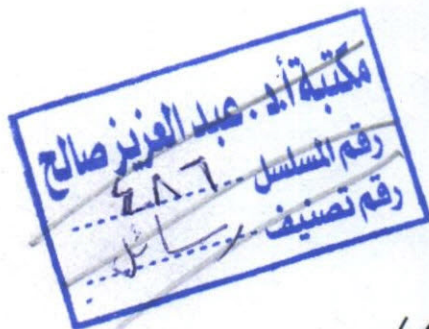 مكتبة أ.د. عبد العزيز صالح
رقم المسلسل ٤٨٦
رقم تصنيف رسائل